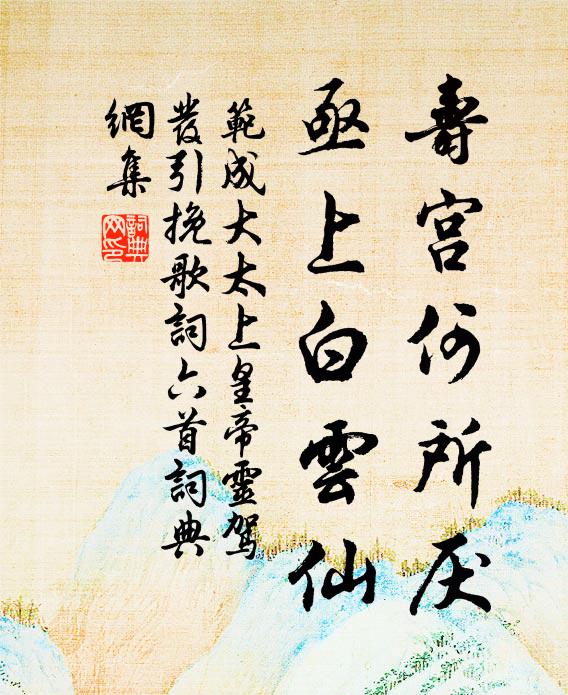 壽宮何所厌
亟上白雲仙
範成大太上皇帝靈駕
發引挽歌詞六首詞典
網集
詞典網印